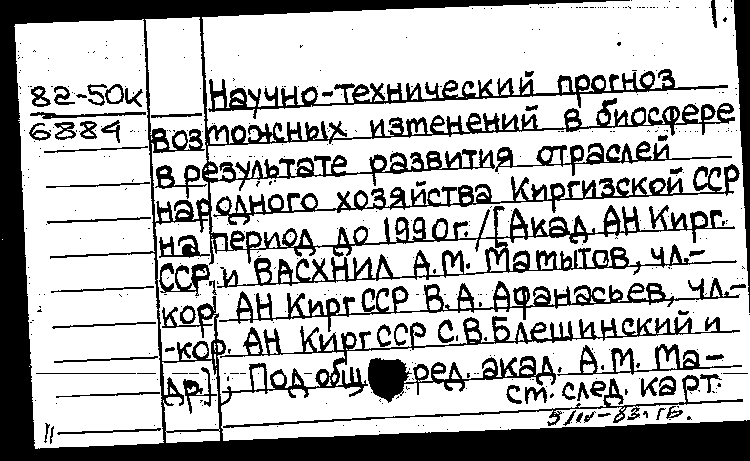 1.
82-50к
6884
Научно-технический прогноз
возможных изменений в биосфере
в результате развития отраслей
народного хозяйства Киргизской ССР
на период до 1990г. /[Акад. АН Кирг.
ССР и ВАСХНИЛ А.М. Мамытов, чл.-
кор. АН КиргССР В.А. Афанасьев, чл.-
-кор. АН КиргССР С.В.Блешинский и
др.]; Под общ. ред. акад. А.М. Ма-
см. след. карт.